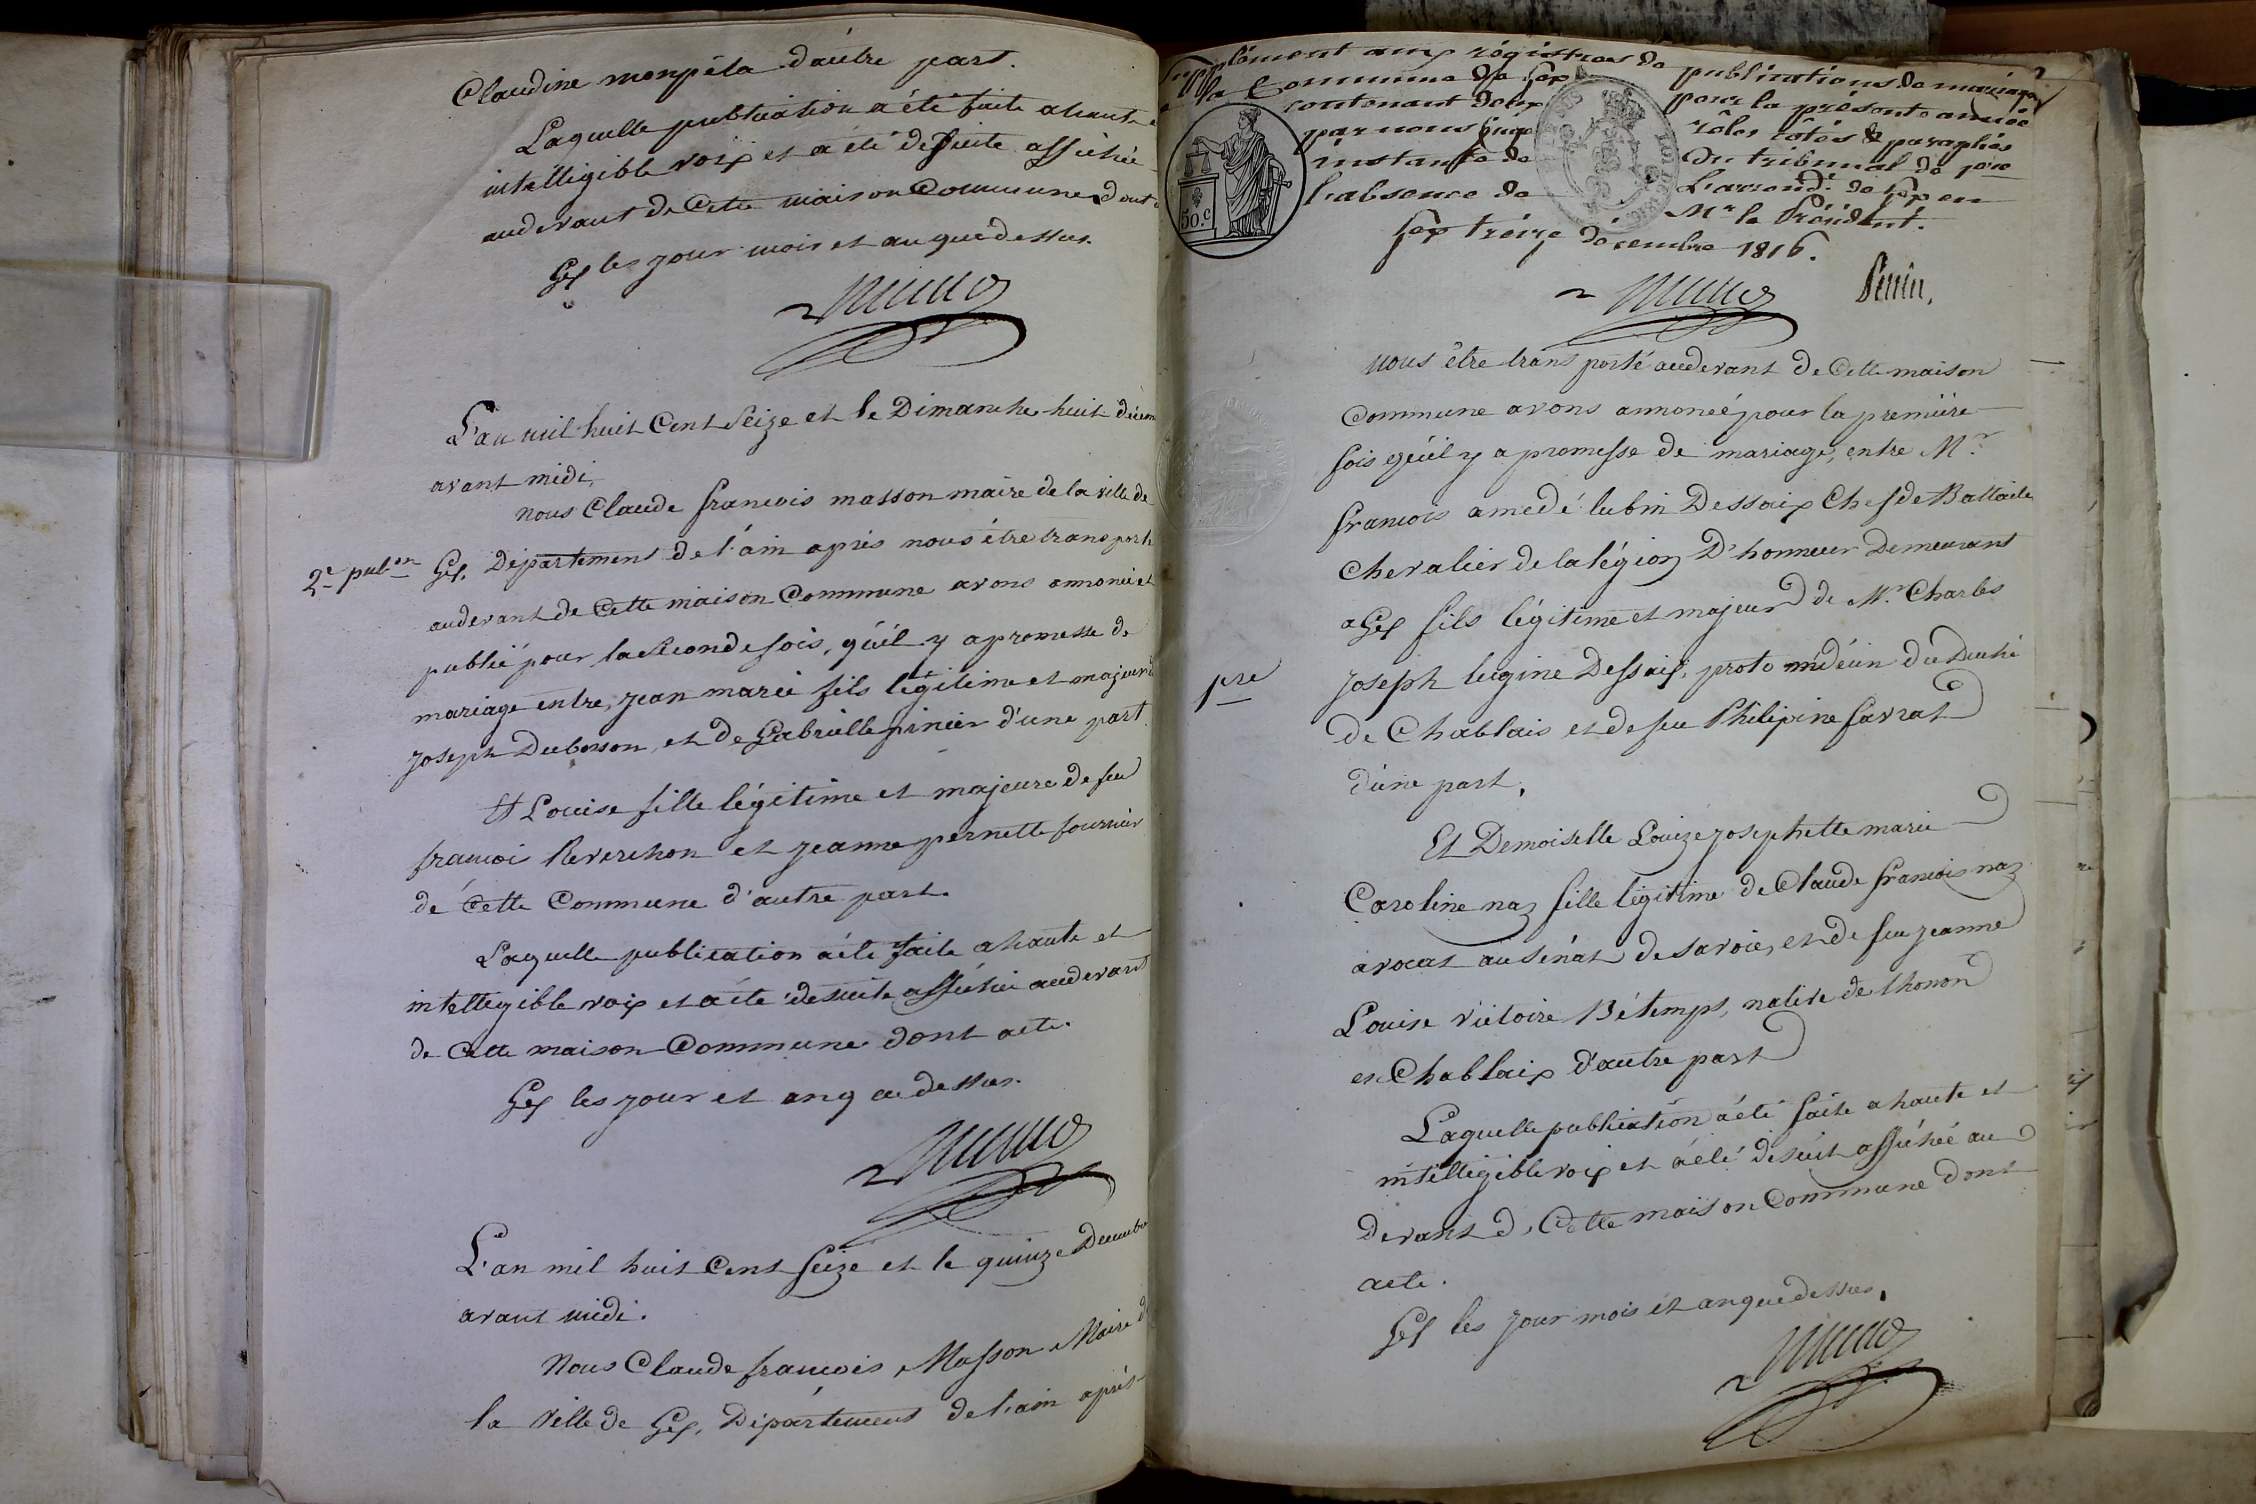 Claudine monpéla d'autre part.
Laquelle publication a été faite a haute
intelligible voix et a été de suite affichée
audevant de Cette maison Commune, dont
Gex les jour mois et an que dessus.
L'an mil huit Cent Seize et le Dimanche huit décem
avant midi,
nous Claude françois masson maire de la ville de
2e pubon
Gex, Département de l'ain après nous être transporté
audevant de Cette maison Commune avons annoncé et
publié pour la Seconde fois, qu'il y a promesse de
mariage entre, jean marie fils légitime et majeur de
joseph Duborson, et de Gabrielle pinier d'une part
Et Louise fille légitime et majeure de feu
françoi Reverchon et jeanne pernette fournier
de Cette Commune d'autre part.
Laquelle publication a été faite a haute et
intelligible voix et a été de suite affichée audevant
de Cette maison Commune dont acte.
Gex les jour et an q au dessus.
L'an mil huit Cent Seize et le quinze Decembre
avant midi.
Nous Claude françois Masson Maire de
la Ville de Gex, Département de l'ain après
Supplément aux régistres de publications de mariages
de la Commune de Gex pour la présente année
contenant deux rôles cotés & paraphés
par nous juge du tribunal de pre
instance de l'arrond.t de Gex en
l'absence de Mr le Président.
Gex treize décembre 1816.
50.c
nous être transporté audevant de Cette maison
Commune avons annoncé pour la première
fois qu'il y a promesse de mariage, entre Mr
françois amedé lubin Dessaix Chef de Bataile
Chevalier de la légion D'honneur Demeurant
a Gex fils légitime et majeur de Mr Charles
pre
joseph Eugine Dessaix, proto médecin du Duché
de Chablais et de feu Philipine favrat
d'une part,
Et Demoiselle Louize josephette marie
Caroline naz fille légitime de Claude françois naz
avocat au Sénat de Savoie, et de feu jeanne
Louise victoire Bétemps, native de thonon
en Chablaix d'autre part
Laquelle publication a été faite a haute et
intelligible voix et a été de suit affichée au
devant de Cette maison Commune dont
acte.
Gex les jour mois et an que dessus,